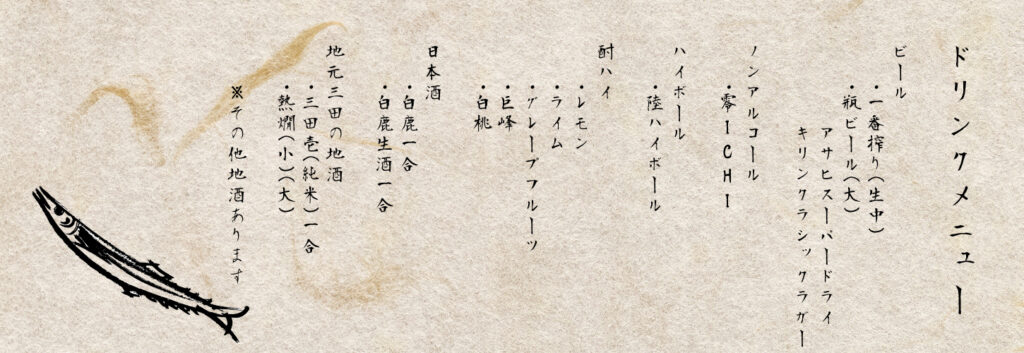 ドリンクメニュー
ビール
・一番搾り(生中)
・瓶ビール(大)
アサヒスーパードライ
キリンクラシックラガー
ノンアルコール
・零ICHI
ハイボール
・陸ハイボール
酎ハイ
・レモン
・ライム
・グレープフルーツ
・巨峰
・白桃
日本酒
・白鹿一合
・白鹿生酒一合
地元三田の地酒
・三田壱(純米)一合
・熱燗(小)(大)
※その他地酒あります